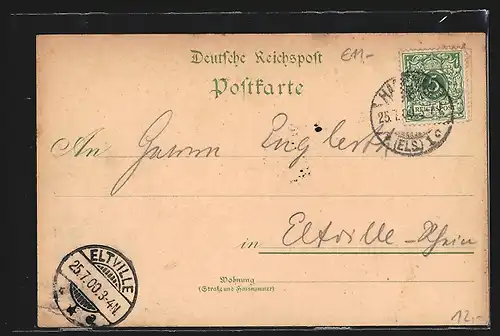 Deutsche Reichspost
€11,-
Postkarte
25.7.
(ELS) 1c
An Englert
in Eltville-Rhein
ELTVILLE
25.7.00.3-4N.
Wohnung
(Straße und Hausnummer)
12.-